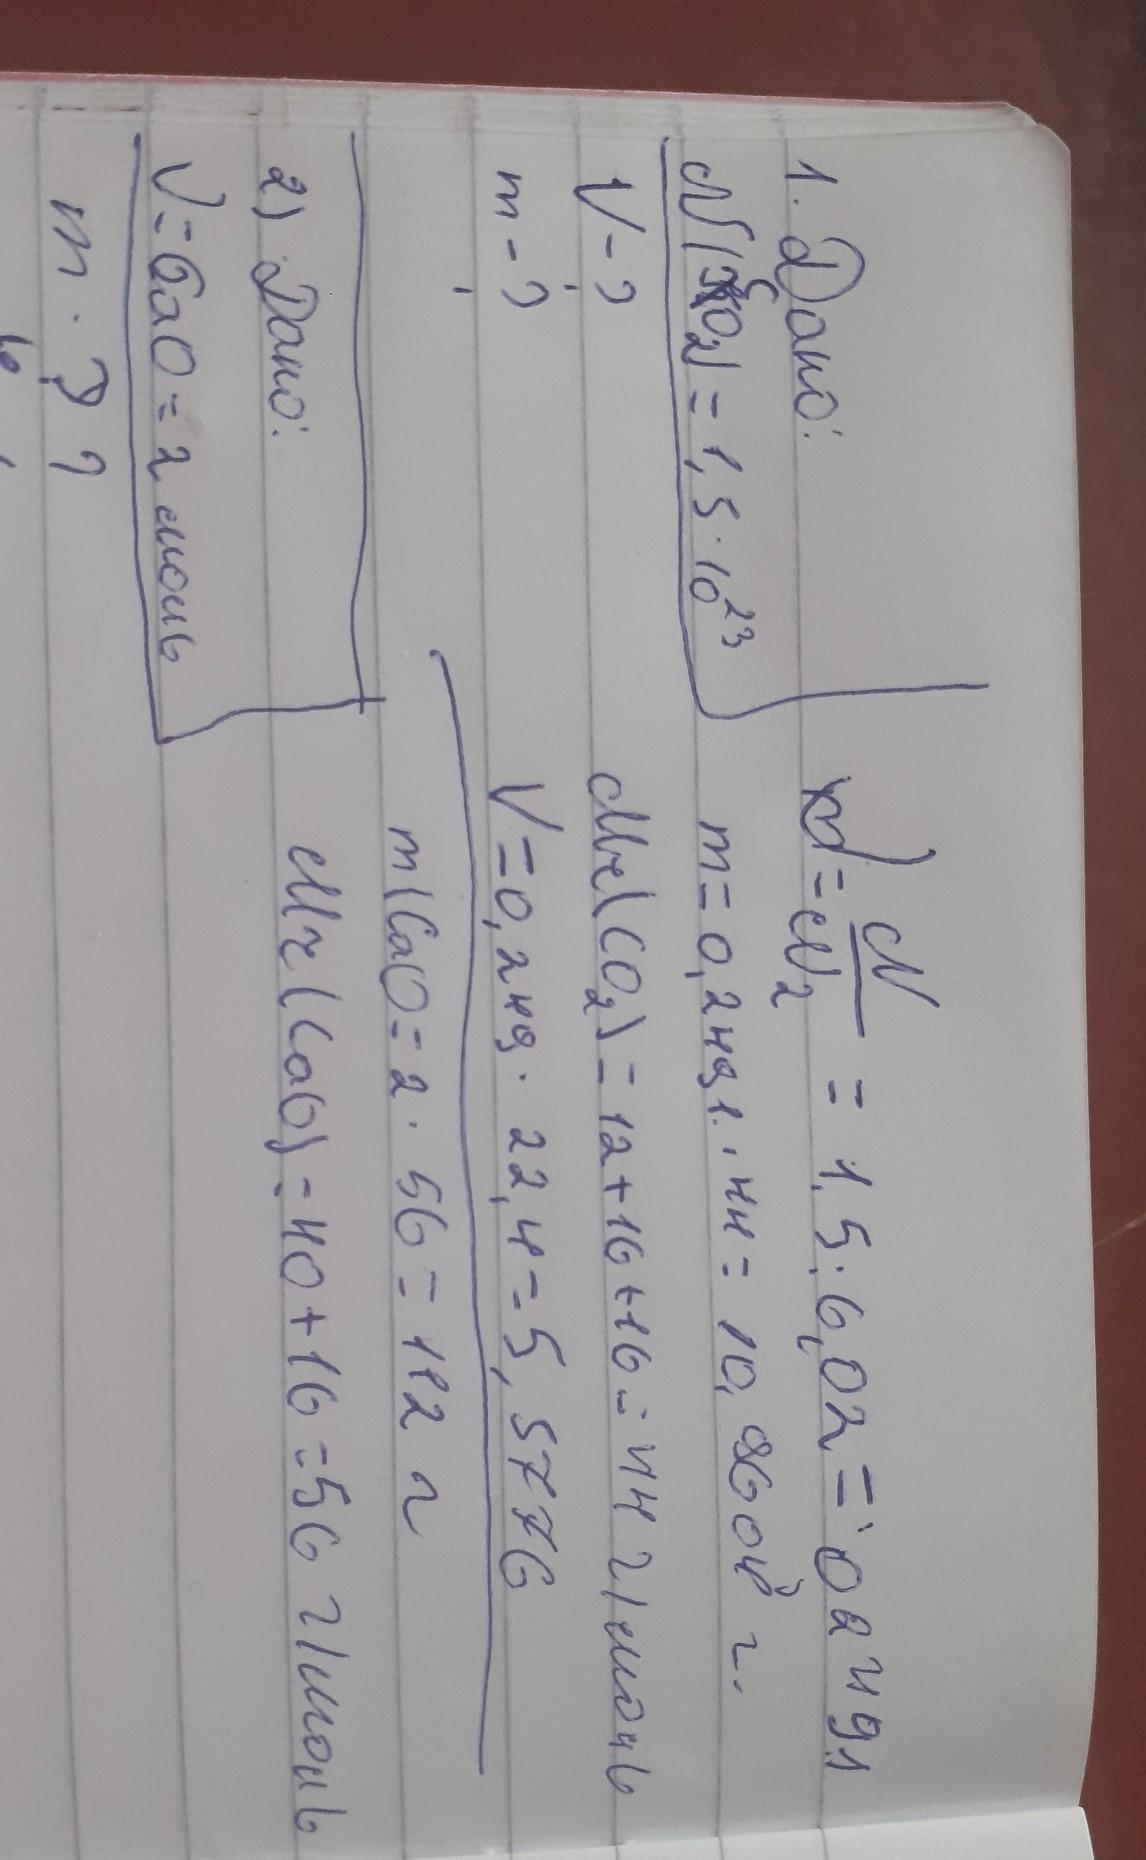 1. Дано:
N(CO₂) = 1,5 · 10²³
V - ?
m - ?
= 1,5 : 6,02 = 0,2491
m = 0,2491 · 44 = 10,9604 г.
Mr(CO₂) = 12 + 16 + 16 = 44 г/моль
V = 0,249 · 22,4 = 5,5776
2) Дано:
V = CaO = 2 моль
m - ?
m(CaO = 2 · 56 = 112 г
Mr(CaO) = 40 + 16 = 56 г/моль